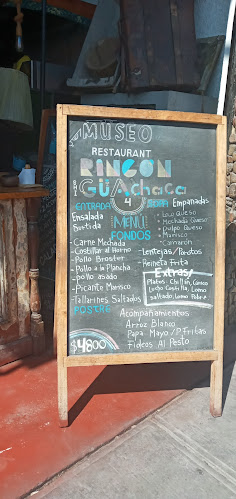 RINCON
MUSEO
RESTAURANT
RINCON
GÜAchaca
ENTRADA
4
SOPA
Empanadas
MENÚ
FONDOS
Ensalada
Surtida
Queso
Mechada Queso
Pulpo Queso
Marisco
Camarón
-Carne Mechada
-Costillar al Horno
-Pollo Broster
-Pollo a la Plancha
-pollo asado
-Picante Marisco
-Tallarines Saltados
-Lentejas/Porotos
-Reineta Frita
Extras/
Platos: Chillán, Conico
Lucho Costilla, Lomo
Saltado, Lomo Pobre
POSTRE
$4800
Acompañamientos
Arroz Blanco
Papa Mayo/P. Fritas
Fideos Al Pesto